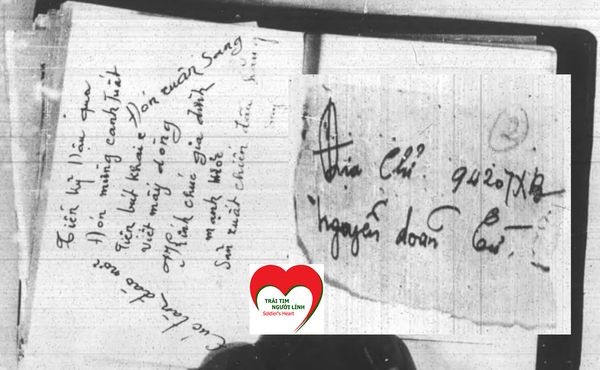 Tiễn kỷ Dậu qua
Đón mừng canh tuất
Tiên bút khai Đón xuân Sang
Viết mấy dòng
Kính chúc gia đình
mạnh khỏe
Sản xuất chiến đấu hăng
Cúc lan đào nở
2
Địa Chỉ 94207XB
Nguyễn doãn Cừ.
TRÁI TIM
NGƯỜI LÍNH
Soldier's Heart